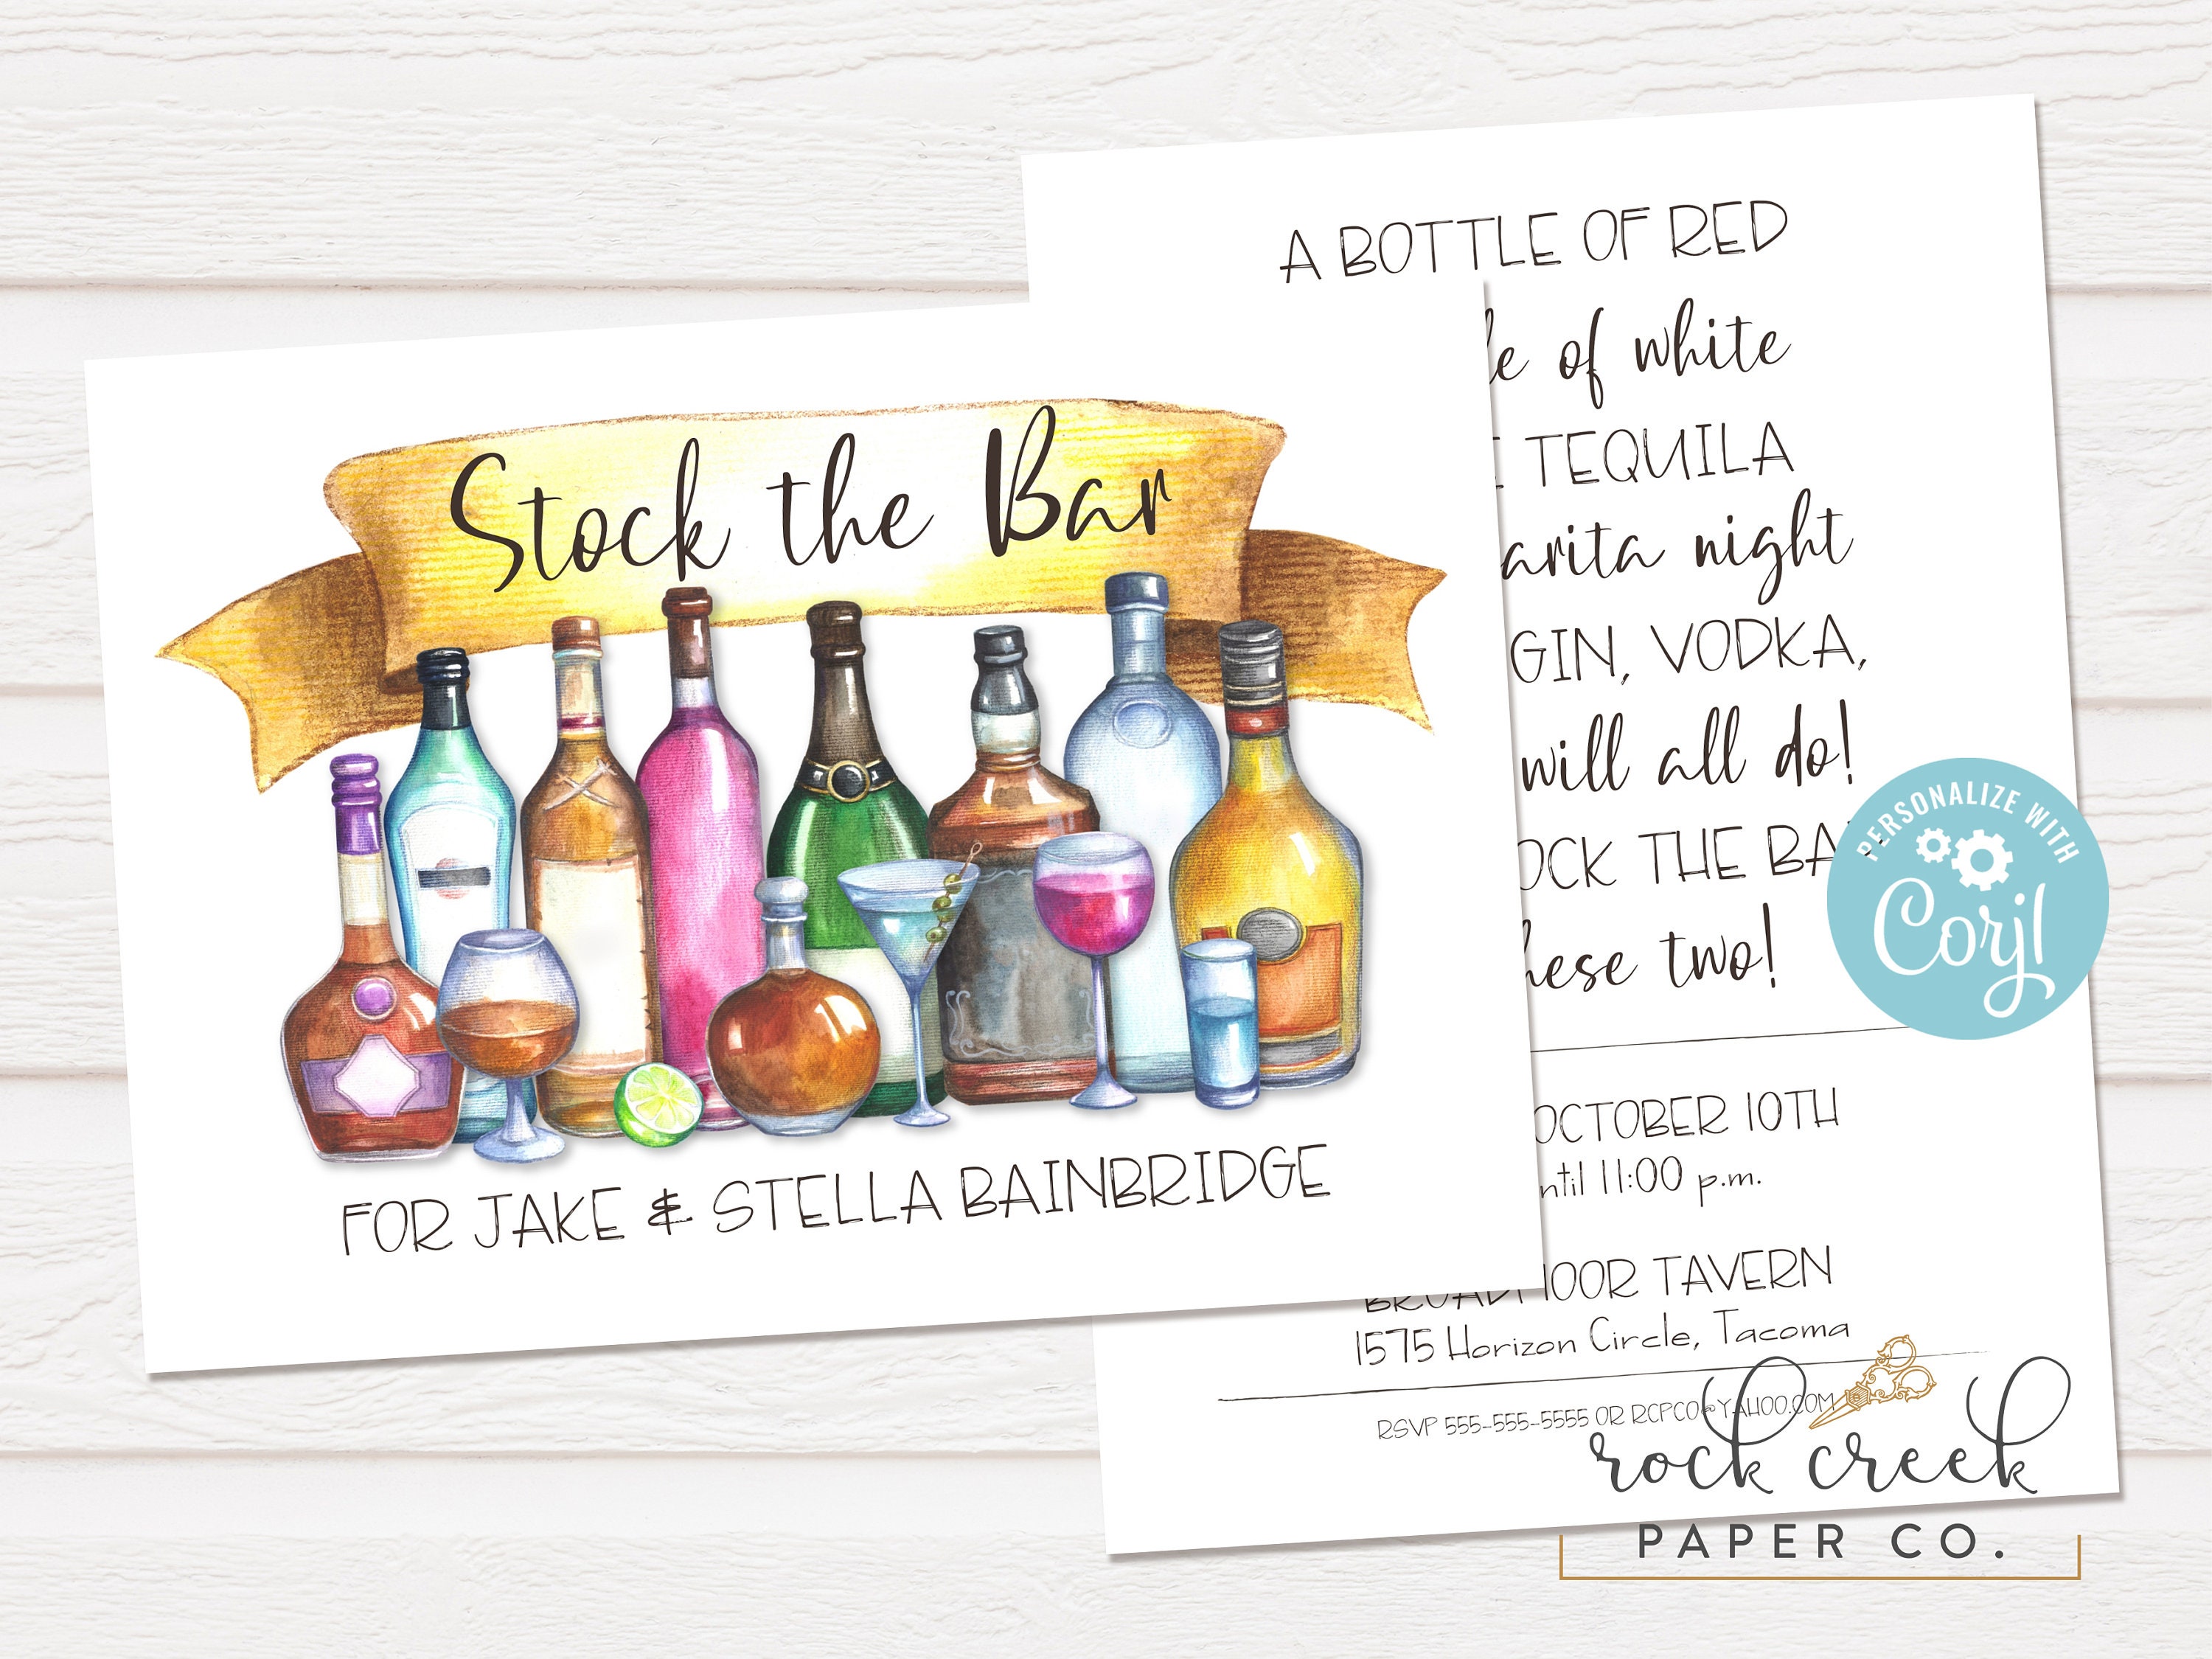 Stock the Bar
FOR JAKE & STELLA BAINBRIDGE
A BOTTLE OF RED
of white
TEQUILA
night
GIN, VODKA,
will all do!
THE
two!
OCTOBER 10TH
11:00 p.m.
TAVERN
1575 Horizon Circle, Tacoma
RSVP 555-555-5555 OR RCPCO@YAHOO.COM
PERSONALIZE WITH
Corjl
rock creek
PAPER CO.